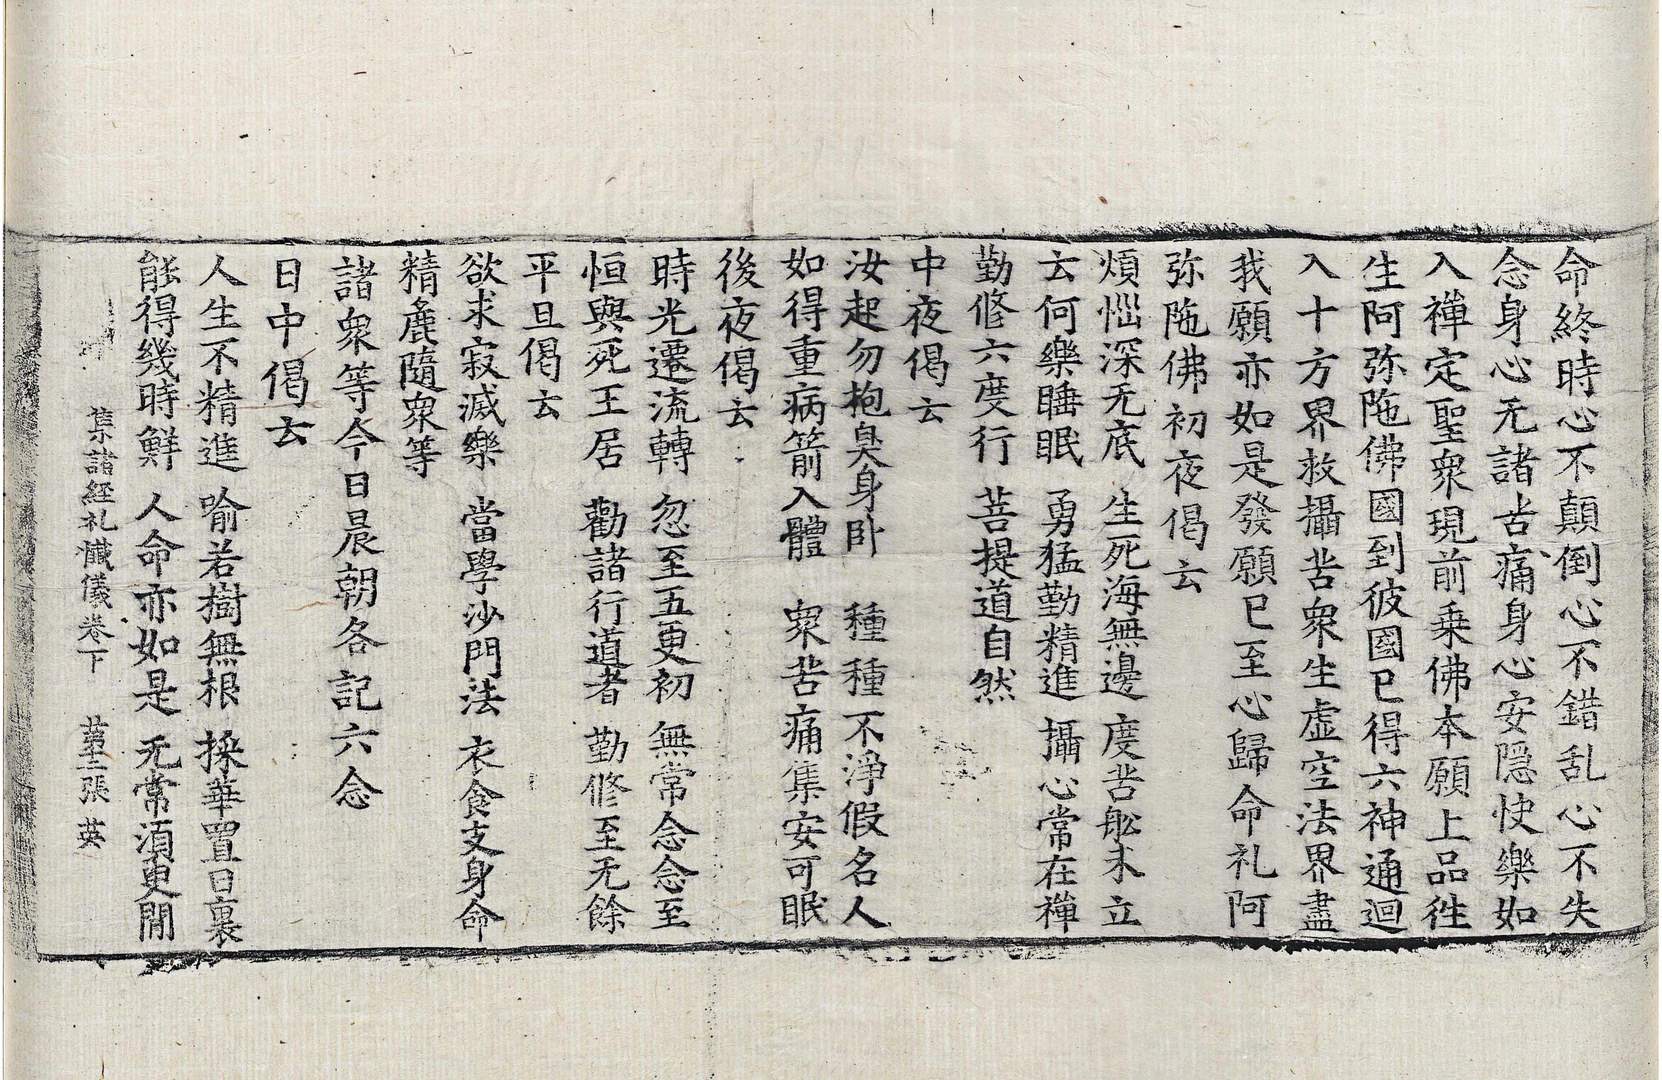 命終時心不顛倒心不錯乱心不失
念身心无諸苦痛身心安隱快樂如
入禪定聖衆現前乗佛本願上品往
生阿弥陁佛國到彼國已得六神通迴
入十方界救攝苦衆生虛空法界盡
我願亦如是發願已至心歸命礼阿
弥陁佛初夜偈云
煩惱深无底 生死海無邊 度苦舩未立
云何樂睡眠 勇猛勤精進 攝心常在禪
勤修六度行 菩提道自然
中夜偈云
汝起勿抱臭身卧 種種不淨假名人
如得重病箭入體 衆苦痛集安可眠
後夜偈云
時光遷流轉 忽至五更初 無常念念至
恒與死王居 勸諸行道者 勤修至无餘
平旦偈云
欲求寂滅樂 當學沙門法 衣食支身命
精麁隨衆等
諸衆等今日晨朝各記六念
日中偈云
人生不精進 喻若樹無根 採華置日裏
能得幾時鮮 人命亦如是 无常須更間
集諸経礼懺儀卷下 第十二張 英